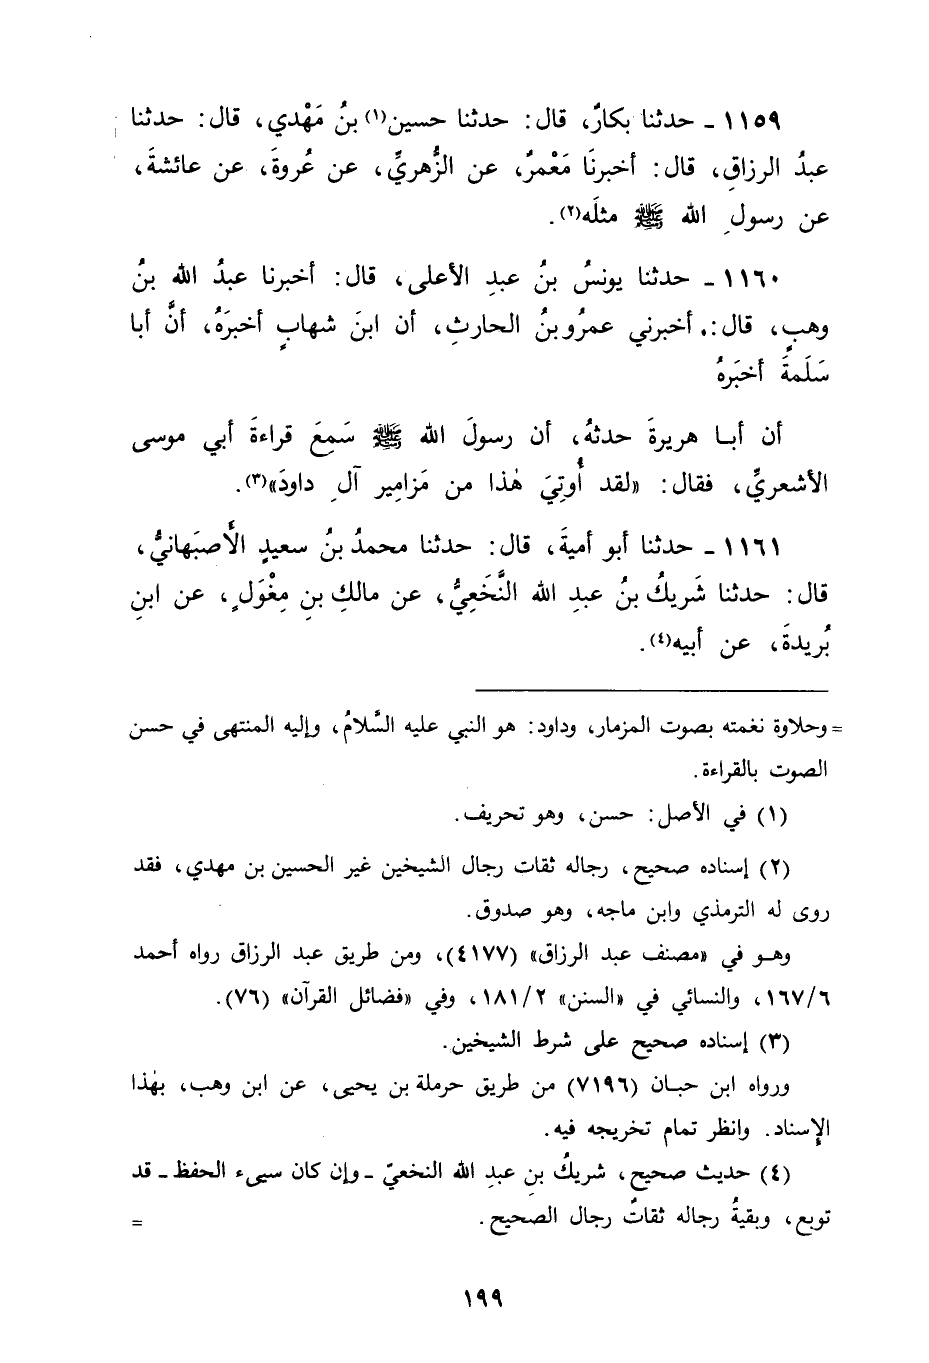 ١١٥٩ ـ حدثنا بكارٌ، قال: حدثنا حسين(١) بنُ مَهْدي، قال: حدثنا
عبدُ الرزاقِ، قال: أخبرنَا مَعْمرٌ، عن الزُّهريِّ، عن عُروةَ، عن عائشةَ،
عن رسولِ الله ﷺ مثلَه(٢).
١١٦٠ ـ حدثنا يونسُ بنُ عبدِ الأعلى، قال: أخبرنا عبدُ الله بنُ
وهبٍ، قال:. أخبرني عمرُو بنُ الحارثِ، أن ابنَ شهابٍ أخبرَهُ، أنَّ أبا
سَلَمةَ أخبَرهُ
أن أبـا هريرةَ حدثهُ، أن رسولَ الله ﷺ سَمِعَ قراءةَ أبي موسى
الأشعريِّ، فقال: «لقد أُوتِيَ هٰذا من مَزامِير آلِ داودَ»(٣).
١١٦١ ـ حدثنا أبو أميةَ، قال: حدثنا محمدُ بنُ سعيدٍ الأَصبَهانيُّ،
قال: حدثنا شَريكُ بنُ عبدِ الله النَّخَعِيُّ، عن مالكِ بنِ مِغْوَلٍ، عن ابنِ
بُريدةَ، عن أبيه(٤).
= وحلاوة نغمته بصوت المزمار، وداود: هو النبي عليه السَّلامُ، وإليه المنتهى في حسن
الصوت بالقراءة.
(١) في الأصل: حسن، وهو تحريف.
(٢) إسناده صحيح، رجاله ثقات رجال الشيخين غير الحسين بن مهدي، فقد
روى له الترمذي وابن ماجه، وهو صدوق.
وهـو في «مصنف عبد الرزاق» (٤١٧٧)، ومن طريق عبد الرزاق رواه أحمد
١٦٧/٦، والنسائي في «السنن» ١٨١/٢، وفي «فضائل القرآن» (٧٦).
(٣) إسناده صحيح على شرط الشيخين.
ورواه ابن حبـان (٧١٩٦) من طريق حرملة بن يحيى، عن ابن وهب، بهٰذا
الإسناد. وانظر تمام تخريجه فيه.
(٤) حديث صحيح، شريكُ بن عبدِ الله النخعيّ ـ وإن كان سيىء الحفظ ـ قد
توبع، وبقيةُ رجاله ثقاتٌ رجال الصحيح. =
١٩٩